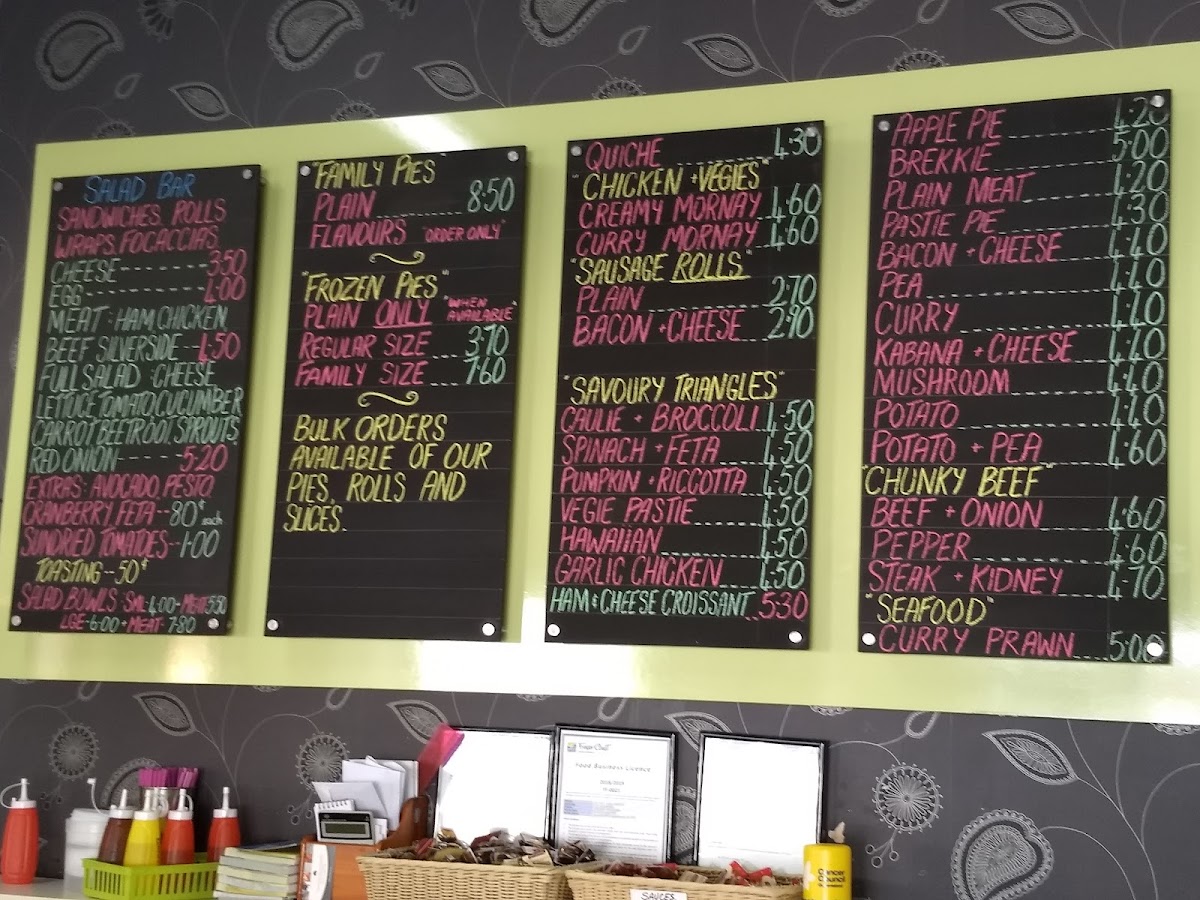 SALAD BAR
SANDWICHES, ROLLS
WRAPS, FOCACCIA'S
CHEESE 3.50
EGG 4.00
MEAT : HAM CHICKEN
BEEF SILVERSIDE 4.50
FULL SALAD : CHEESE
LETTUCE TOMATO, CUCUMBER
CARROT BEETROOT, SPROUTS
RED ONION 5.20
EXTRAS : AVOCADO, PESTO
CRANBERRY FETA -- 80¢ each
SUNDRIED TOMATOES -- 1.00
TOASTING -- 50¢
SALAD BOWLS : SML 4.00 + MEAT 5.50
LGE - 6.00 + MEAT - 7.80
"FAMILY PIES"
PLAIN 8.50
FLAVOURS "ORDER ONLY"
"FROZEN PIES"
PLAIN ONLY "WHEN AVAILABLE"
REGULAR SIZE 3.70
FAMILY SIZE 7.60
BULK ORDERS
AVAILABLE OF OUR
PIES, ROLLS AND
SLICES.
QUICHE 4.30
"CHICKEN + VEGIES"
CREAMY MORNAY 4.60
CURRY MORNAY 4.60
"SAUSAGE ROLLS"
PLAIN 2.70
BACON + CHEESE 2.90
"SAVOURY TRIANGLES"
CAULIE + BROCCOLI 4.50
SPINACH + FETA 4.50
PUMPKIN + RICCOTTA 4.50
VEGIE PASTIE 4.50
HAWAIIAN 4.50
GARLIC CHICKEN 4.50
HAM & CHEESE CROISSANT 5.30
APPLE PIE 4.20
BREKKIE 5.00
PLAIN MEAT 4.20
PASTIE PIE 4.30
BACON + CHEESE 4.40
PEA 4.40
CURRY 4.40
KABANA + CHEESE 4.40
MUSHROOM 4.40
POTATO 4.40
POTATO + PEA 4.60
"CHUNKY BEEF"
BEEF + ONION 4.60
PEPPER 4.60
STEAK + KIDNEY 4.70
"SEAFOOD"
CURRY PRAWN 5.00
Food Business Licence
Cancer
Council
SAUCES